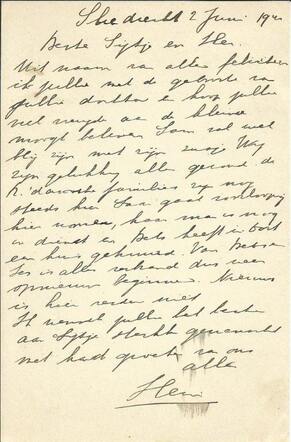 Sliedrecht 2 Juni 19
Beste Sijtje en Han.
Uit naam van allen feliciteer
ik jullie met de geboorte van
jullie dochter en hoop jullie
veel vreugde aan de kleine
moogt beleven Sam zal wel
blij zijn met zijn zusje Wij
zijn gelukkig allen gezond. de
R. families zijn nog
steeds hier Sam gaat
hier wonen, haar man is nog
in dienst en Bets heeft in Dort
een huis gehuurd. Van
is alles verbrand dus weer
opnieuw beginnen. Nieuws
is hier verder niet
Ik wensch jullie het beste
aan Sijtje sterkte gewenscht
met hart. groeten van ons
allen